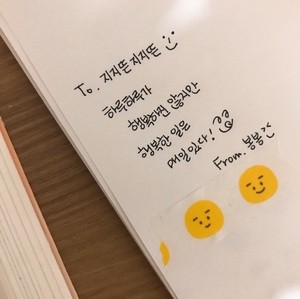 To. 지지뜬지지뜬
하루하루가
행복하진 않지만
행복한 일은
매일있다!
From. 봉봉